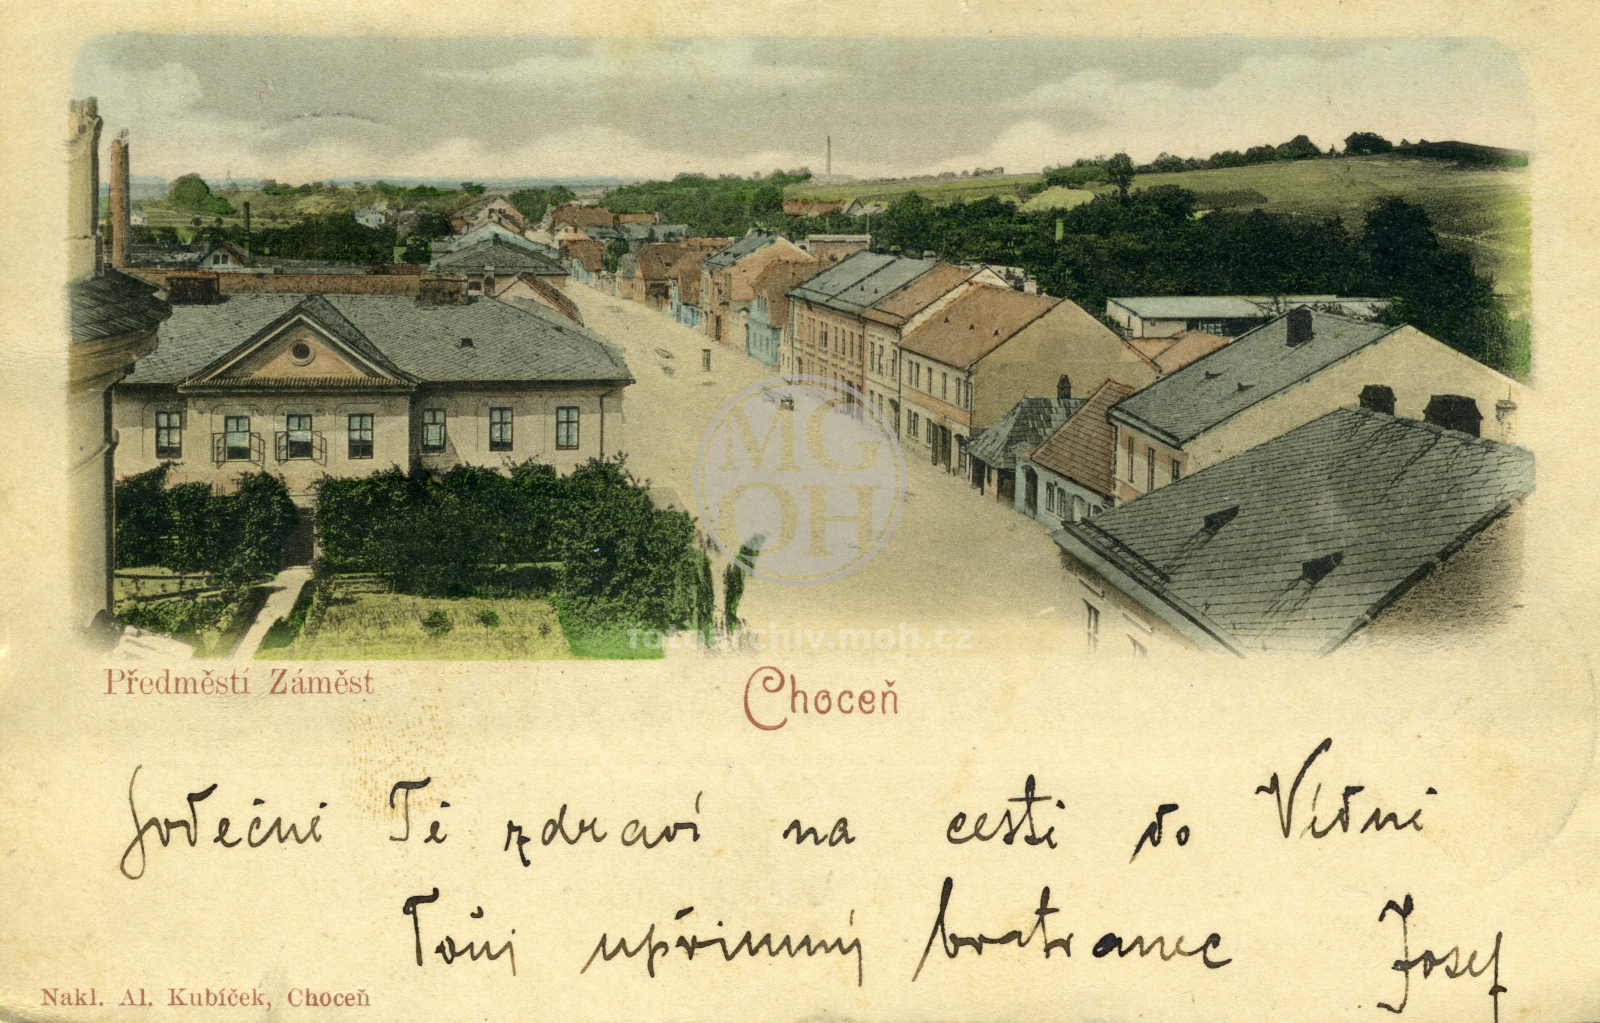 MG
OH
fotoarchiv.moh.cz
Předměstí Záměst
Choceň
Srdečně Ti zdraví na cestě do Vídni
Tvůj upřimný bratranec Josef
Nakl. Al. Kubíček, Choceň